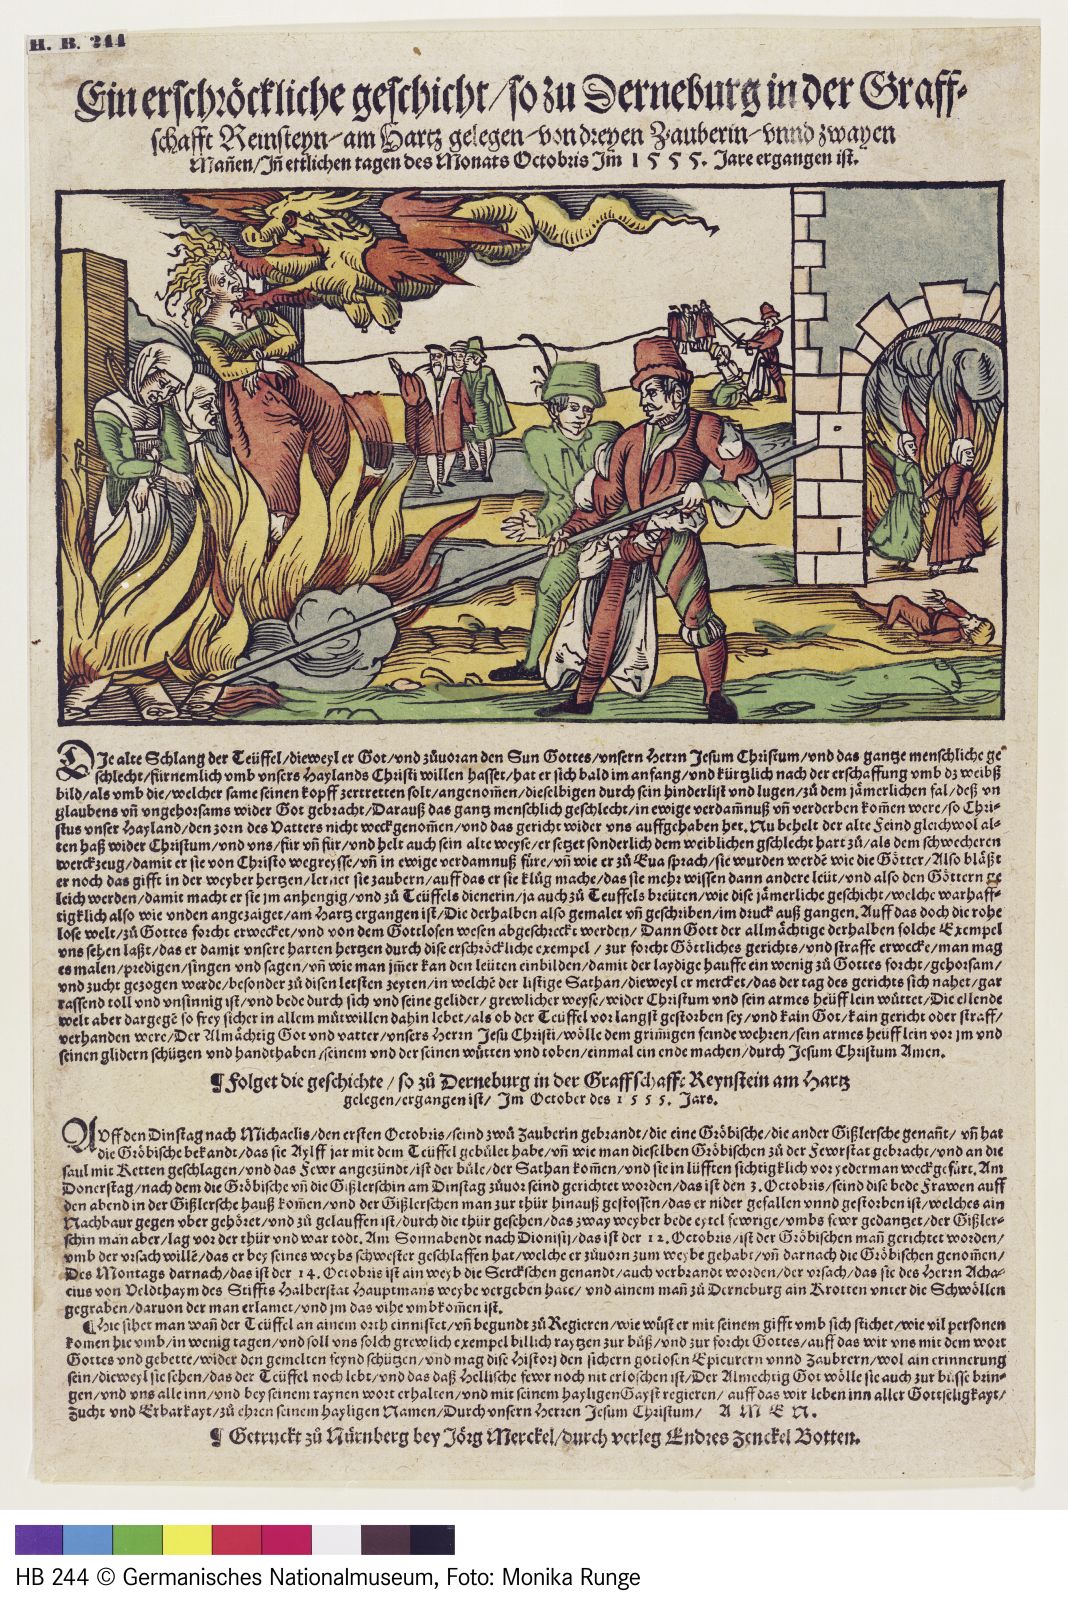 H. B. 244
Ein erschröckliche geschicht/so zu Derneburg in der Graff-
schafft Reinsteyn/am Hartz gelegen/von dreyen Zauberin/vnnd zwayen
Mañen/Iñ ettlichen tagen des Monats Octobris Im 1555. Jare ergangen ist.
DJe alte Schlang der Teüffel/dieweyl er Got/vnd zůuoran den Sun Gottes/vnsern Herrn Jesum Christum/vnd das gantze menschliche ge
schlecht/fürnemlich vmb vnsers Haylands Christi willen hasset/hat er sich bald im anfang/vnd kürtzlich nach der erschaffung vmb dz weibß
bild/als vmb die/welcher same seinen kopff zertretten solt/angenom̃en/dieselbigen durch sein hinderlist vnd lugen/zů dem jämerlichen fal/deß vñ
glaubens vñ vngehorsams wider Got gebracht/Darauß das gantz menschlich geschlecht/in ewige verdam̃nuß vñ verderben kom̃en were/so Chri-
stus vnser Hayland/den zorn des Vatters nicht weckgenom̃en/vnd das gericht wider vns auffgehaben het. Nu behelt der alte Feind gleichwol al-
ten haß wider Christum/vnd vns/für vñ für/vnd helt auch sein alte weyse/er setzet sonderlich dem weiblichen gschlecht hart zů/als dem schwecheren
werckzeug/damit er sie von Christo wegreysse/vñ in ewige verdamnuß füre/vñ wie er zů Eua sprach/sie wurden werdẽ wie die Götter/Also bläßt
er noch das gifft in der weyber hertzen/lernet sie zaubern/auff das er sie klůg mache/das sie mehr wissen dann andere leüt/vnd also den Göttern ge
leich werden/damit macht er sie jm anhengig/vnd zů Teüffels dienerin/ja auch zů Teuffels breüten/wie dise jämerliche geschicht/welche warhaff-
tigklich also wie vnden angezaiget/am Hartz ergangen ist/Die derhalben also gemalet vñ geschriben/im druck auß gangen. Auff das doch die rohe
lose welt/zů Gottes forcht erwecket/vnd von dem Gottlosen wesen abgeschreckt werden/Dann Gott der allmächtige derhalben solche Exempel
vns sehen laßt/das er damit vnsere harten hertzen durch dise erschröckliche exempel/zur forcht Göttliches gerichts/vnd straffe erwecke/man mag
es malen/predigen/singen vnd sagen/vñ wie man jm̃er kan den leüten einbilden/damit der laydige hauffe ein wenig zů Gottes forcht/gehorsam/
vnd zucht gezogen werde/besonder zů disen letsten zeyten/in welchẽ der listige Sathan/dieweyl er mercket/das der tag des gerichts sich nahet/gar
rassend toll vnd vnsinnig ist/vnd bede durch sich vnd seine gelider/grewlicher weyse/wider Christum vnd sein armes heüfflein wüttet/Die ellende
welt aber dargegẽ so frey sicher in allem můtwillen dahin lebet/als ob der Teüffel vor langst gestorben sey/vnd kain Got/kain gericht oder straff/
verhanden were/Der Almächtig Got vnd vatter/vnsers Herrn Jesu Christi/wölle dem grim̃igen feinde wehren/sein armes heüfflein vor jm vnd
seinen glidern schützen vnd handthaben/seinem vnd der seinen wütten vnd toben/einmal ein ende machen/durch Jesum Christum Amen.
¶ Folget die geschichte/so zů Derneburg in der Graffschafft Reynstein am Hartz
gelegen/ergangen ist/Im October des 1555. Jars.
AVff den Dinstag nach Michaelis/den ersten Octobris/seind zwů Zauberin gebrandt/die eine Gröbische/die ander Gißlersche genañt/vñ hat
die Gröbische bekandt/das sie Aylff jar mit dem Teüffel gebůlet habe/vñ wie man dieselben Gröbischen zů der Fewrstat gebracht/vnd an die
saul mit Ketten geschlagen/vnd das Fewr angezündt/ist der bůle/der Sathan kom̃en/vnd sie in lüfften sichtigklich vor yederman weckgefürt. Am
Donerstag/nach dem die Gröbische vñ die Gißlerschin am Dinstag zůuor seind gerichtet worden/das ist den 3. Octobris/seind dise bede Frawen auff
den abend in der Gißlersche hauß kom̃en/vnd der Gißlerschen man zur thür hinauß gestossen/das er nider gefallen vnnd gestorben ist/welches ain
Nachbaur gegen vber gehöret/vnd zů gelauffen ist/durch die thür gesehen/das zway weyber bede eytel fewrige/vmbs fewr gedantzet/der Gißler-
schin man aber/lag vor der thür vnd war todt. Am Sonnabendt nach Dionisij/das ist der 12. Octobris/ist der Gröbischen mañ gerichtet worden/
vmb der vrsach willẽ/das er bey seines weybs schwester geschlaffen hat/welche er zůuorn zum weybe gehabt/vñ darnach die Gröbischen genom̃en/
Des Montags darnach/das ist der 14. Octobris ist ain weyb die Serckschen genandt/auch verbrandt worden/der vrsach/das sie des Herrn Acha-
cius von Veldthaym des Stiffts Halberstat Hauptmans weybe vergeben hate/vnd ainem mañ zů Derneburg ain Krotten vnter die Schwöllen
gegraben/daruon der man erlamet/vnd jm das vihe vmbkom̃en ist.
¶ Hie sihet man wañ der Teüffel an ainem orth einnistet/vñ begundt zů Regieren/wie wüst er mit seinem gifft vmb sich stichet/wie vil personen
komen hie vmb/in wenig tagen/vnd soll vns solch grewlich exempel billich raytzen zur bůß/vnd zur forcht Gottes/auff das wir vns mit dem wort
Gottes vnd gebette/wider den gemelten feynd schützen/vnd mag dise Histori den sichern gotlosen Epicurern vnnd Zaubrern/wol ain erinnerung
sein/dieweyl sie sehen/das der Teüffel noch lebt/vnd das daß Hellische fewr noch nit erloschen ist/Der Almechtig Got wölle sie auch zur bůsse brin-
gen/vnd vns alle inn/vnd bey seinem raynen wort erhalten/vnd mit seinem hayligen Gayst regieren/auff das wir leben inn aller Gottseligkayt/
Zucht vnd Erbarkayt/zů ehren seinem hayligen Namen/Durch vnsern Herren Jesum Christum/ A M E N.
¶ Getruckt zů Nürnberg bey Jörg Merckel/durch verleg Endres Zenckel Botten.
HB 244 © Germanisches Nationalmuseum, Foto: Monika Runge